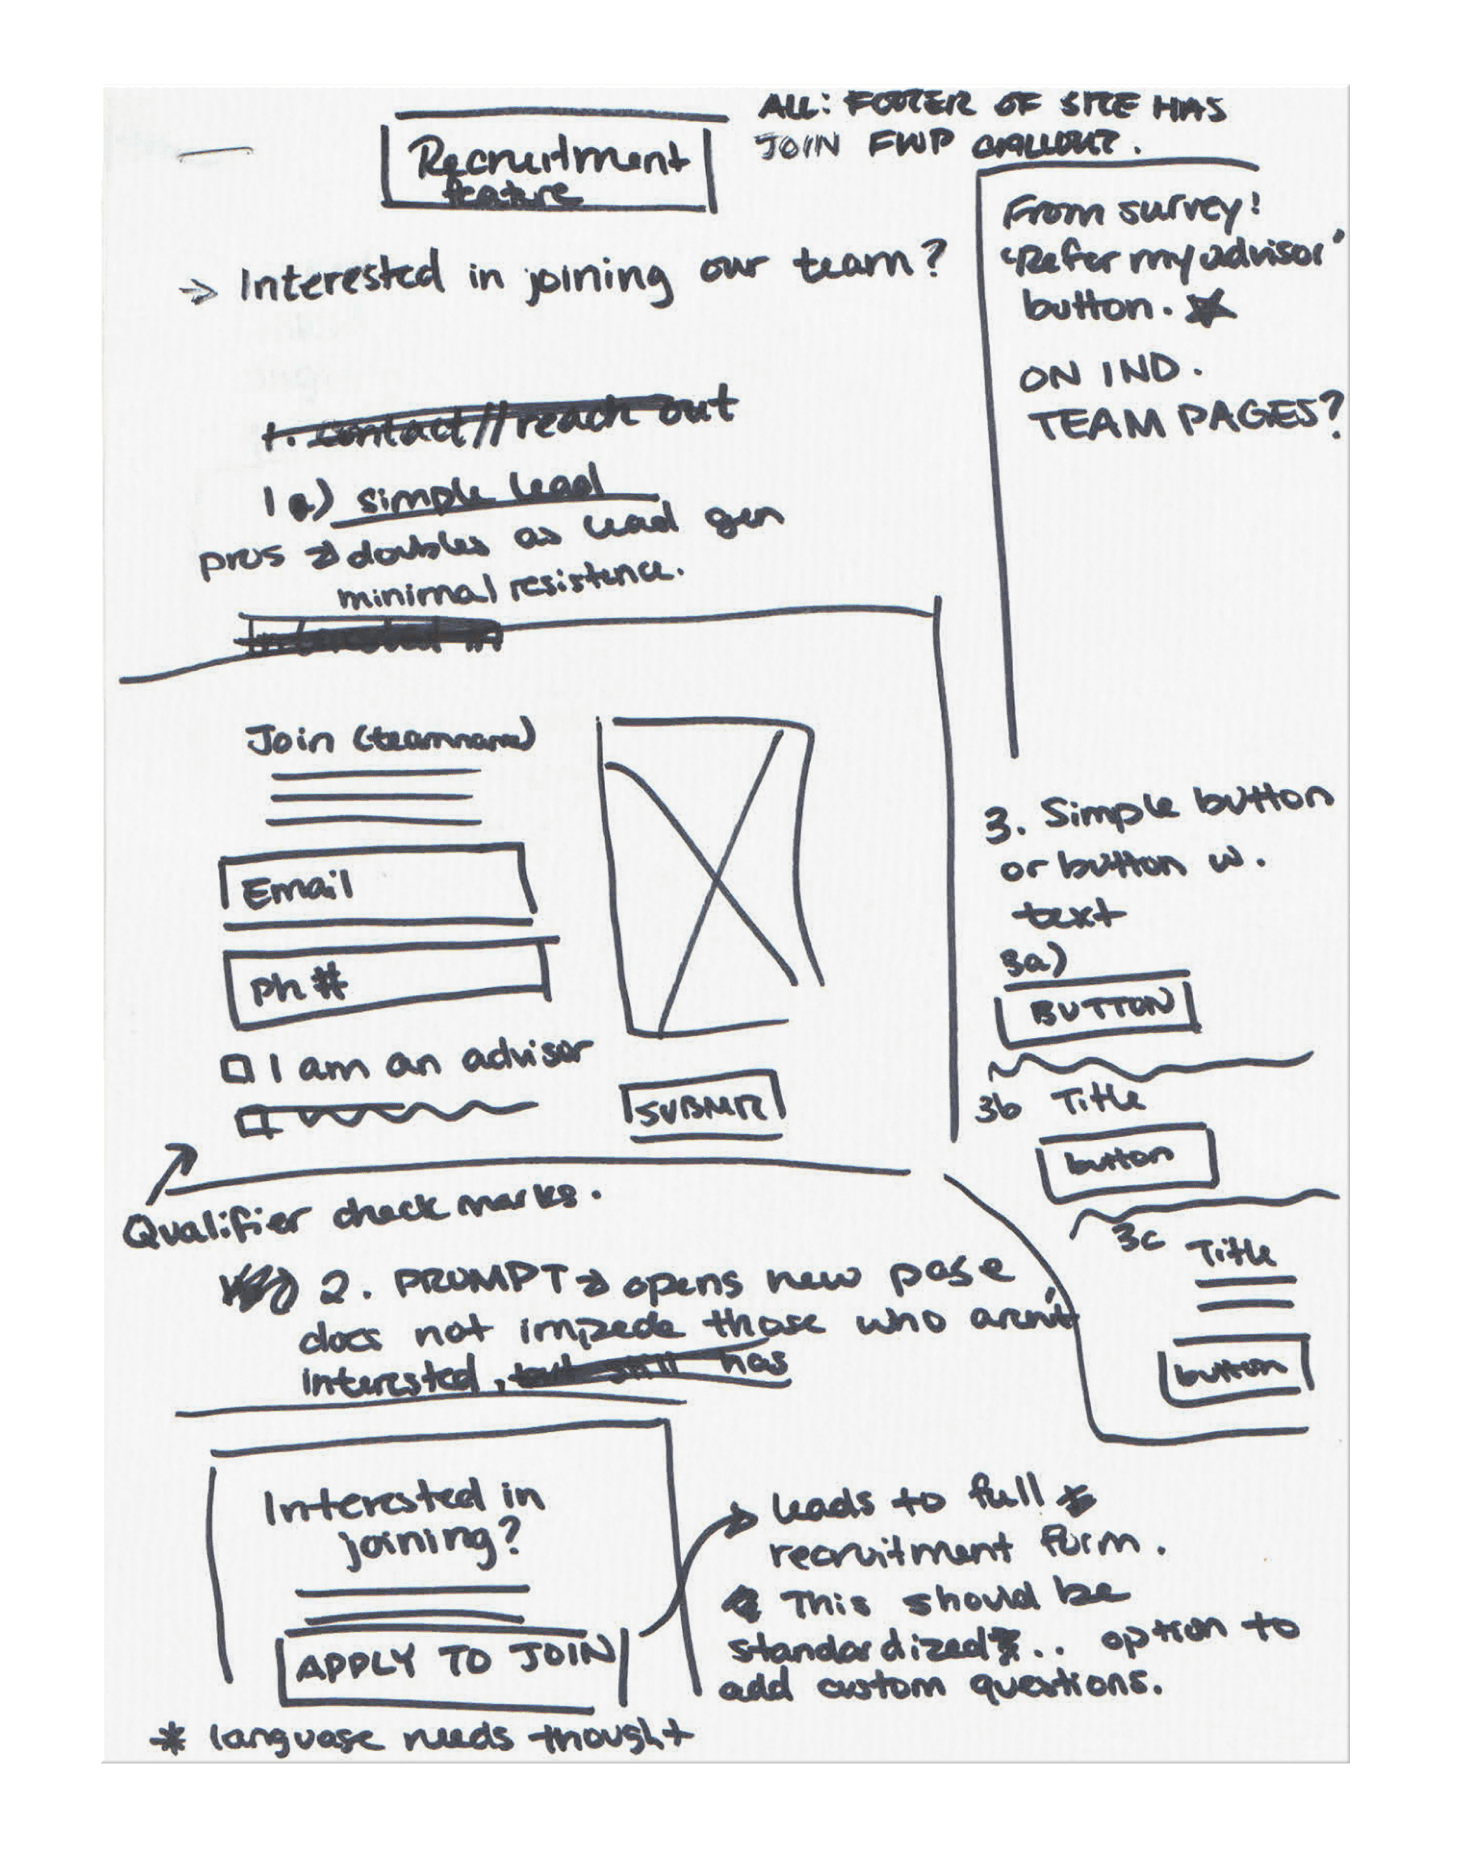 ALL: FOOTER OF SITE HAS
JOIN FWP CALLOUT.
Recruitment
feature
→ Interested in joining our team?
From survey!
"Refer my advisor"
button. ★
ON IND.
TEAM PAGES?
1. contact // reach out
1a) simple lead
pros → doubles as lead gen
minimal resistence.
Interested in
Join (teamname)
Email
Ph #
I am an advisor
SUBMIT
Qualifier check marks.
2. PROMPT → opens new page
does not impede those who aren't
interested, but still has
Interested in
joining?
APPLY TO JOIN
* language needs thought
leads to full *
recruitment form.
This should be
standardized*... option to
add custom questions.
3. Simple button
or button w.
text
3a)
BUTTON
3b Title
button
3c Title
button